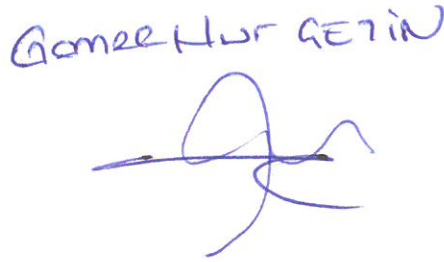 Gamze Nur ÇETİN